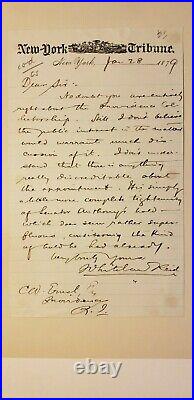 New-York Tribune.
New York, Jan 28 1879
Dear Sir:
No doubt you are entirely
right about the Providence Col-
lectorship. Still I don't believe
the public interest in the matter
would warrant much dis-
cussion of it. I don't under-
stand that there is anything
really discreditable about
the appointment. It is simply
a little more complete tightening
of Senator Anthony's hold—
which does seem rather super-
fluous considering the kind
of hold he had already.
Very truly yours
Whitelaw Reid
Providence
R. I.